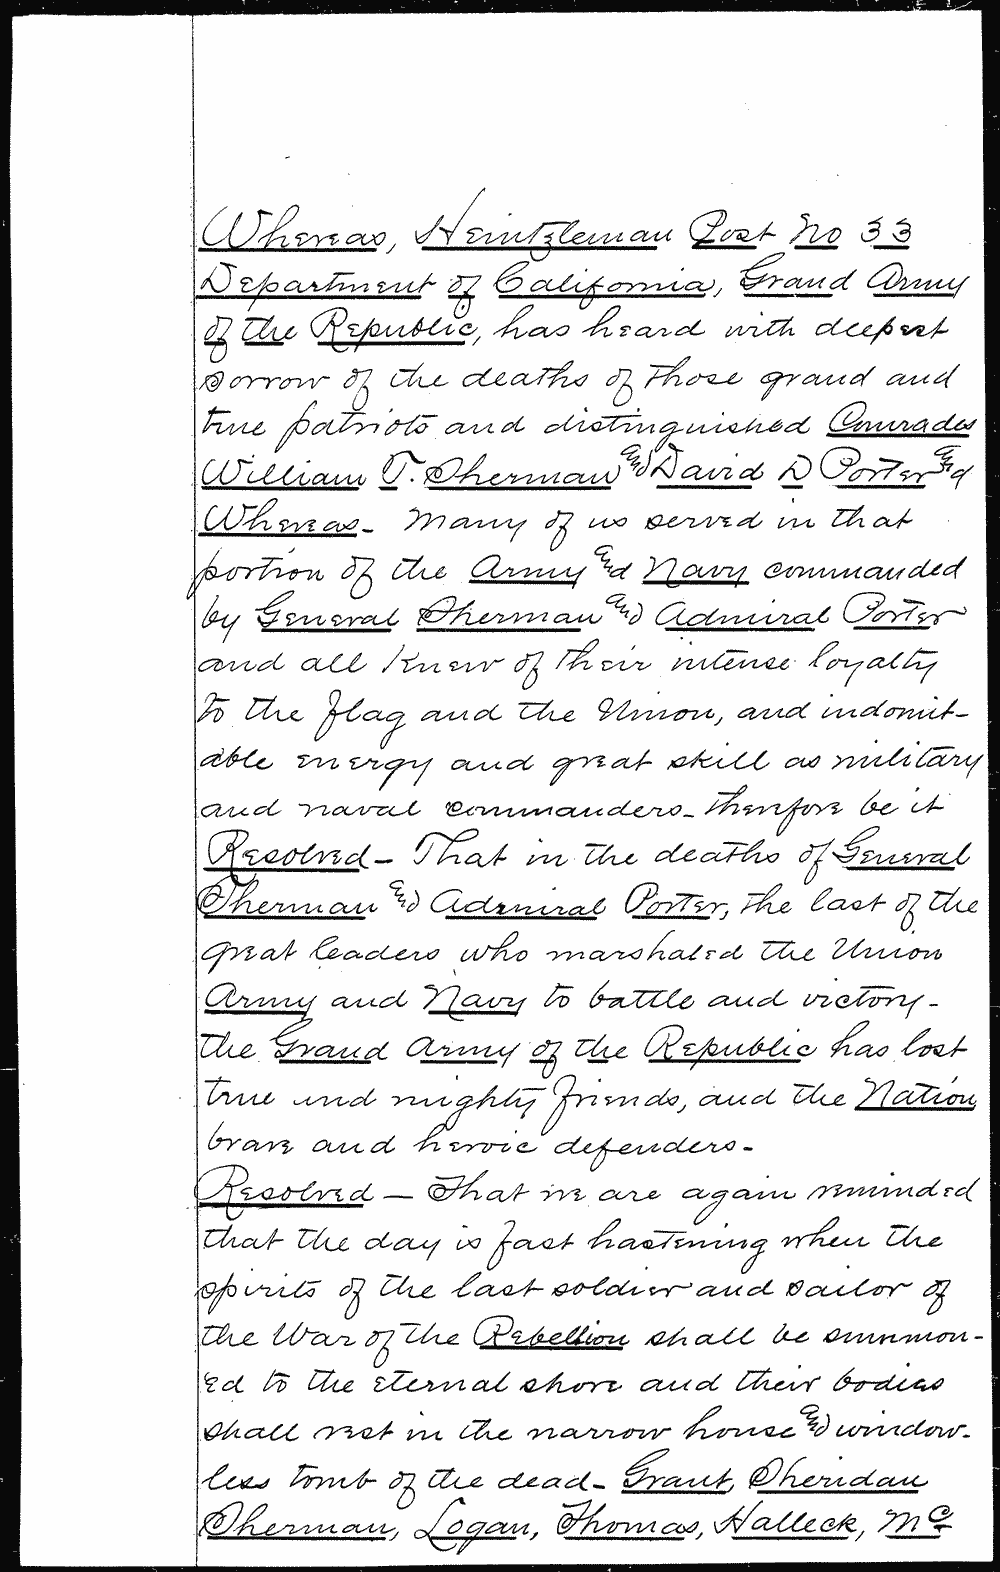 Whereas, Heintzleman Post No 33
Department of California, Grand Army
of the Republic, has heard with deepest
sorrow of the deaths of those grand and
true patriots and distinguished Comrades
William T. Sherman and David D Porter and
Whereas - Many of us served in that
portion of the Army and Navy commanded
by General Sherman and Admiral Porter
and all Knew of their intense loyalty
to the flag and the Union, and indomit-
able energy and great skill as military
and naval commanders - therefore be it
Resolved - That in the deaths of General
Sherman and Admiral Porter, the last of the
great leaders who marshaled the Union
Army and Navy to battle and victory -
the Grand Army of the Republic has lost
true and mighty friends, and the Nation
brave and heroic defenders -
Resolved - That we are again reminded
that the day is fast hastening when the
spirits of the last soldier and sailor of
the War of the Rebellion shall be summon-
ed to the eternal shore and their bodies
shall rest in the narrow house and window-
less tomb of the dead - Grant, Sheridan
Sherman, Logan, Thomas, Halleck, Mc